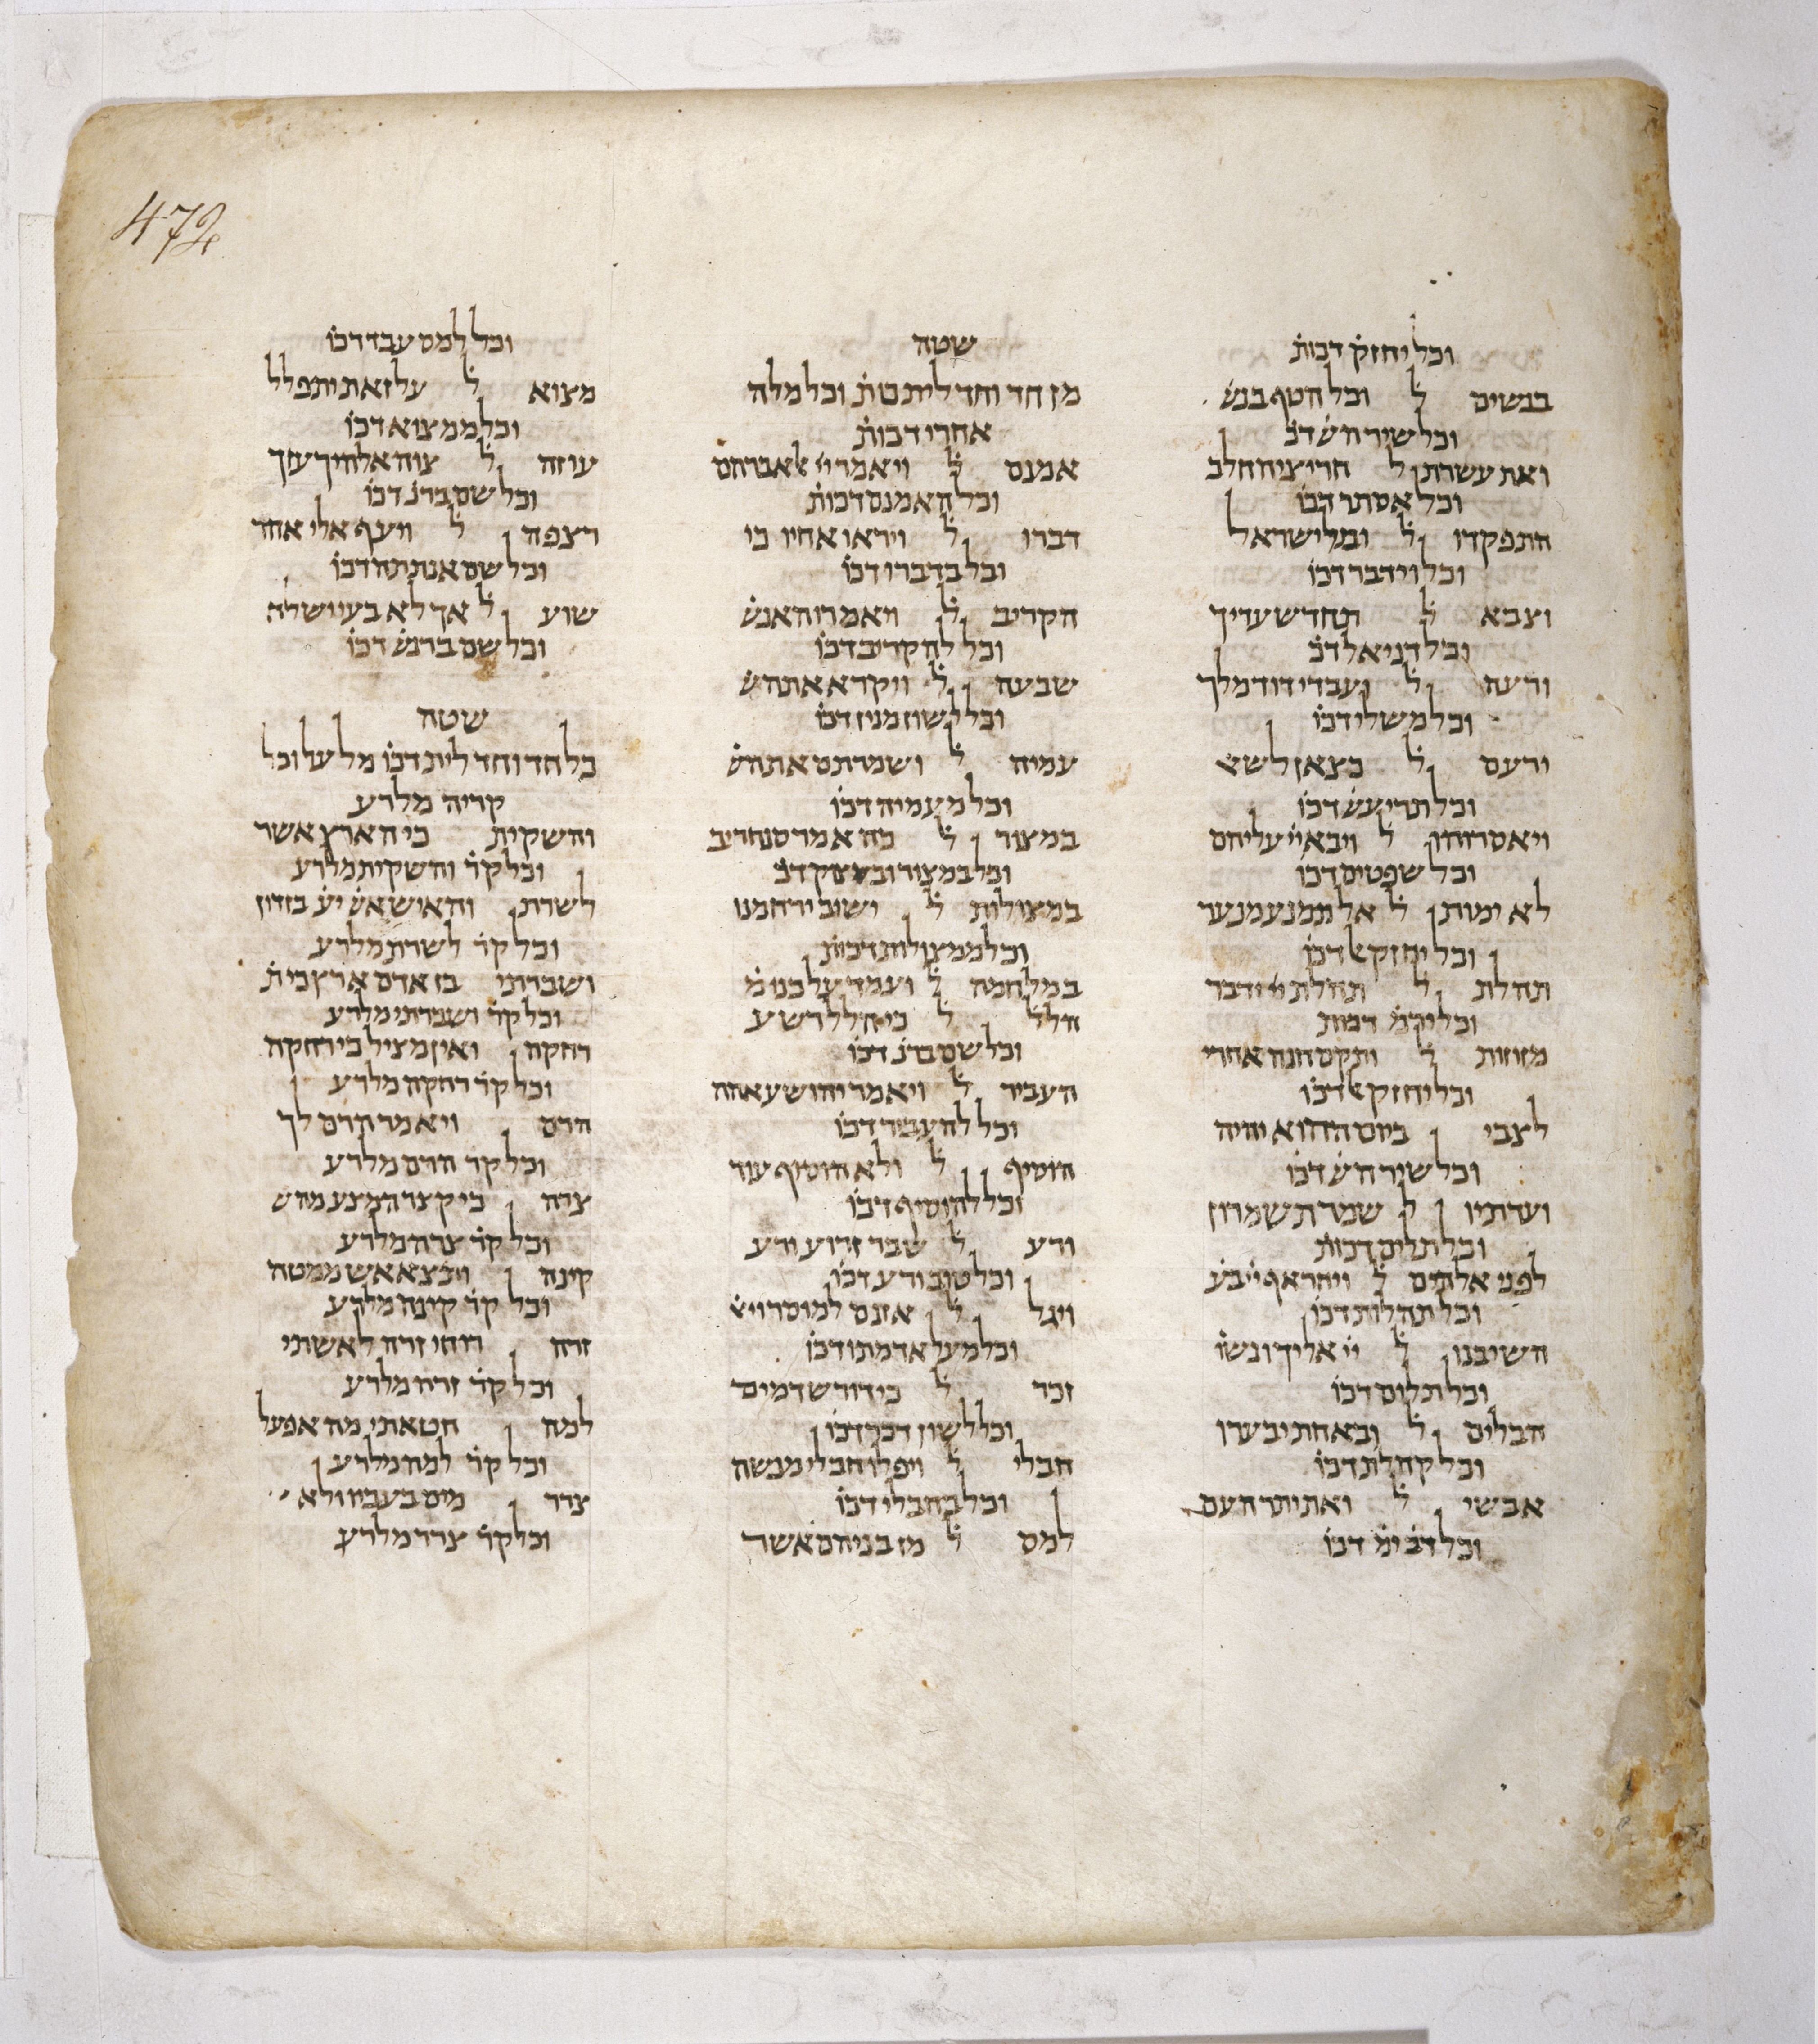 472
וכל יחזק דכות
בנשים ל וכל הטף בנש
וכל שיר הש דכ
ואת עשרתן ל חריצי החלב
וכל אסתר דכו
התפקדו ל ובני ישראל
וכל וידבר דכו
וצבא ל תחדש עדיך
וכל דניאל דכ
ורעה ל ועבדי דוד מלך
וכל משלי דכו
ירעם ל כצאן לשא
וכל תרי עש דכו
ויאסרוהו ל ויבא יי עליהם
וכל שפטים דכו
לא ימותן ל אל תמנע מנער
וכל יחזק דכו
תהלת ל תהלת יי ידבר
וכל יקמ דכות
מזוזות ל ותקם חנה אחרי
וכל יחזק דכו
לצבי ביום ההוא יהיה
וכל שיר הש דכו
ועדתיו ל שמרת שמרון
וכל תלים דכות
לפני אלהים ל ויחר אף ויבע
וכל תהלות דכו
השיבנו ל יי אליך ונשו
וכל תלים דכו
הבלים ל ובאחת יבערו
וכל קהלת דכו
אבשי ל ואת יתר העם
וכל דב ימ דכו
שטה
מן חד וחד לית כות וכל מלה
אחרי דכות
אמנם ל ויאמר יי אל אברהם
וכל האמנם דכות
דברו ל ויראו אחיו כי
וכל בדברו דכו
הקריב ל ויאמרו האנש
וכל להקריב דכו
שבעה ל ויקרא אתה ש
וכל לשון מנין דכו
עמיה ל ושמרתם את הש
וכל מעמיה דכו
במצור ל כה אמר סנחריב
וכל במצור ובמצוק דכ
במצולות ל ישוב ירחמנו
וכל ממצולות דכות
במלחמה ל ועמד על כנו מ
חלל ל כי הלל רשע
וכל שם ברנ דכו
העביר ל ויאמר יהושע אהה
וכל להעביר דכו
הוסיף ל ולא הוסיף עוד
וכל להוסיף דכו
ורע ל שבר זרוע ורע
וכל טוב ורע דכו
ויגל ל אזנם למוסר ויא
וכל מעל אדמתו דכו
זכר ל כי דורש דמים
וכל לשון דכר דכו
חבלי ל ויפלו חבלי מנשה
וכל בחבלי דכו
למס ל מן בניהם אשר
וכל למס עבד דכו
מצוא ל על זאת יתפלל
וכל ממצוא דכו
עוזה ל צוה אלהיך עזך
וכל שם ברנ דכו
רצפה ל ויעף אלי אחד
וכל שם אנתתה דכו
שוע ל אך לא בעי ושלח
וכל שם ברנש דכו
שטה
כל חד וחד לית דכו מלעל וכל
קריה מלרע
והשקית כי הארץ אשר
וכל קר והשקית מלרע
לשרת והאיש אש יע בזדון
וכל קר לשרת מלרע
ושברתי בן אדם ארץ כי ת
וכל קר ושברתי מלרע
רחקה ואין מציל כי רחקה
וכל קר רחקה מלרע
הרם ויאמר הרם לך
וכל קר הרם מלרע
צרה כי קצר המצע מהש
וכל קר צרה מלרע
קינה ותצא אש ממטה
וכל קר קינה מלרע
זרה רוחי זרה לאשתי
וכל קר זרה מלרע
למה חטאתי מה אפעל
וכל קר למה מלרע
צרר מים בעביו ולא
וכל קר צרר מלרע